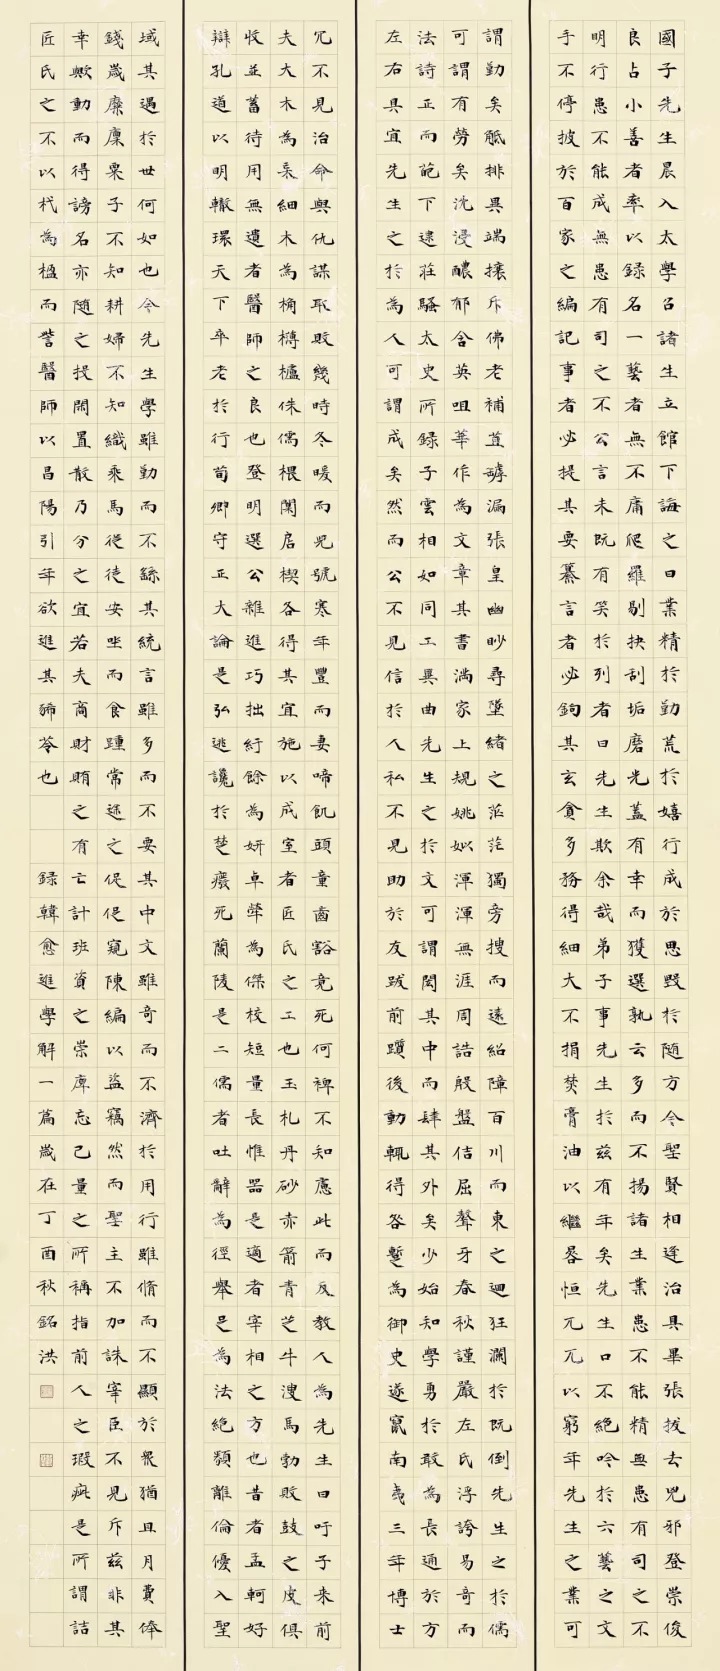 國子先生晨入太學召諸生立館下誨之曰業精於勤荒於嬉行成於思毀於随方今聖賢相逢治具畢張拔去兇邪登崇俊
良占小善者率以録名一藝者無不庸爬羅剔抉刮垢磨光蓋有幸而獲選孰云多而不揚諸生業患不能精無患有司之不
明行患不能成無患有司之不公言未既有笑於列者曰先生欺余哉弟子事先生於兹有年矣先生口不絕吟於六藝之文
手不停披於百家之編記事者必提其要纂言者必鉤其玄貪多務得細大不捐焚膏油以繼晷恒兀兀以窮年先生之業可
謂勤矣觝排異端攘斥佛老補苴罅漏張皇幽眇尋墜緒之茫茫獨旁搜而遠紹障百川而東之迴狂瀾於既倒先生之於儒
可謂有勞矣沈浸醲郁含英咀華作為文章其書滿家上規姚姒渾渾無涯周誥殷盤佶屈聱牙春秋謹嚴左氏浮誇易奇而
法詩正而葩下逮莊騷太史所録子雲相如同工異曲先生之於文可謂閎其中而肆其外矣少始知學勇於敢為長通於方
左右具宜先生之於為人可謂成矣然而公不見信於人私不見助於友跋前躓後動輒得咎暫為御史遂竄南夷三年博士
冗不見治命與仇謀取敗幾時冬暖而兒號寒年豐而妻啼飢頭童齒豁竟死何裨不知慮此而反教人為先生曰吁子来前
夫大木為杗細木為桷欂櫨侏儒椳闑扂楔各得其宜施以成室者匠氏之工也玉札丹砂赤箭青芝牛溲馬勃敗鼓之皮俱
收並蓄待用無遺者醫師之良也登明選公雜進巧拙紆餘為妍卓犖為傑校短量長惟器是適者宰相之方也昔者孟軻好
辯孔道以明轍環天下卒老於行荀卿守正大論是弘逃讒於楚癈死蘭陵是二儒者吐辭為經舉足為法絕類離倫優入聖
域其遇於世何如也今先生學雖勤而不繇其統言雖多而不要其中文雖奇而不濟於用行雖脩而不顯於衆猶且月費俸
錢歲靡廩粟子不知耕婦不知織乘馬從徒安坐而食踵常途之促促窺陳編以盜竊然而聖主不加誅宰臣不見斥兹非其
幸歟動而得謗名亦随之投閑置散乃分之宜若夫商財賄之有亡計班資之崇庳忘己量之所稱指前人之瑕疵是所謂詰
匠氏之不以杙為楹而訾醫師以昌陽引年欲進其豨苓也 録韓愈進學解一篇歲在丁酉秋銘洪